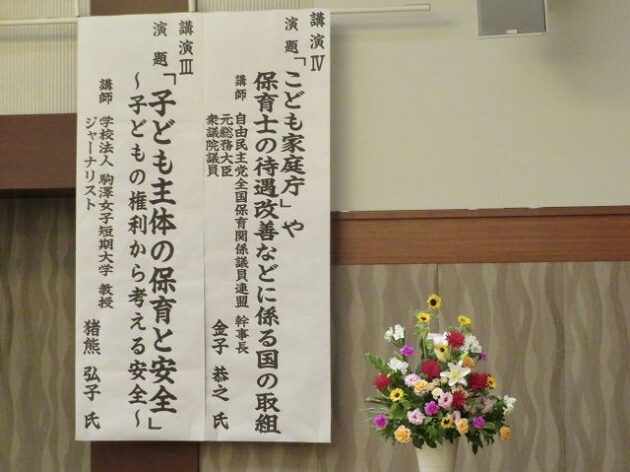 講演Ⅳ
演題「こども家庭庁」や
保育士の待遇改善などに係る国の取組
講師 自由民主党全国保育関係議員連盟 幹事長
元総務大臣
衆議院議員
金子 恭之 氏
講演Ⅲ
演題「子ども主体の保育と安全」
～子どもの権利から考える安全～
講師 学校法人 駒澤女子短期大学 教授
ジャーナリスト
猪熊 弘子 氏